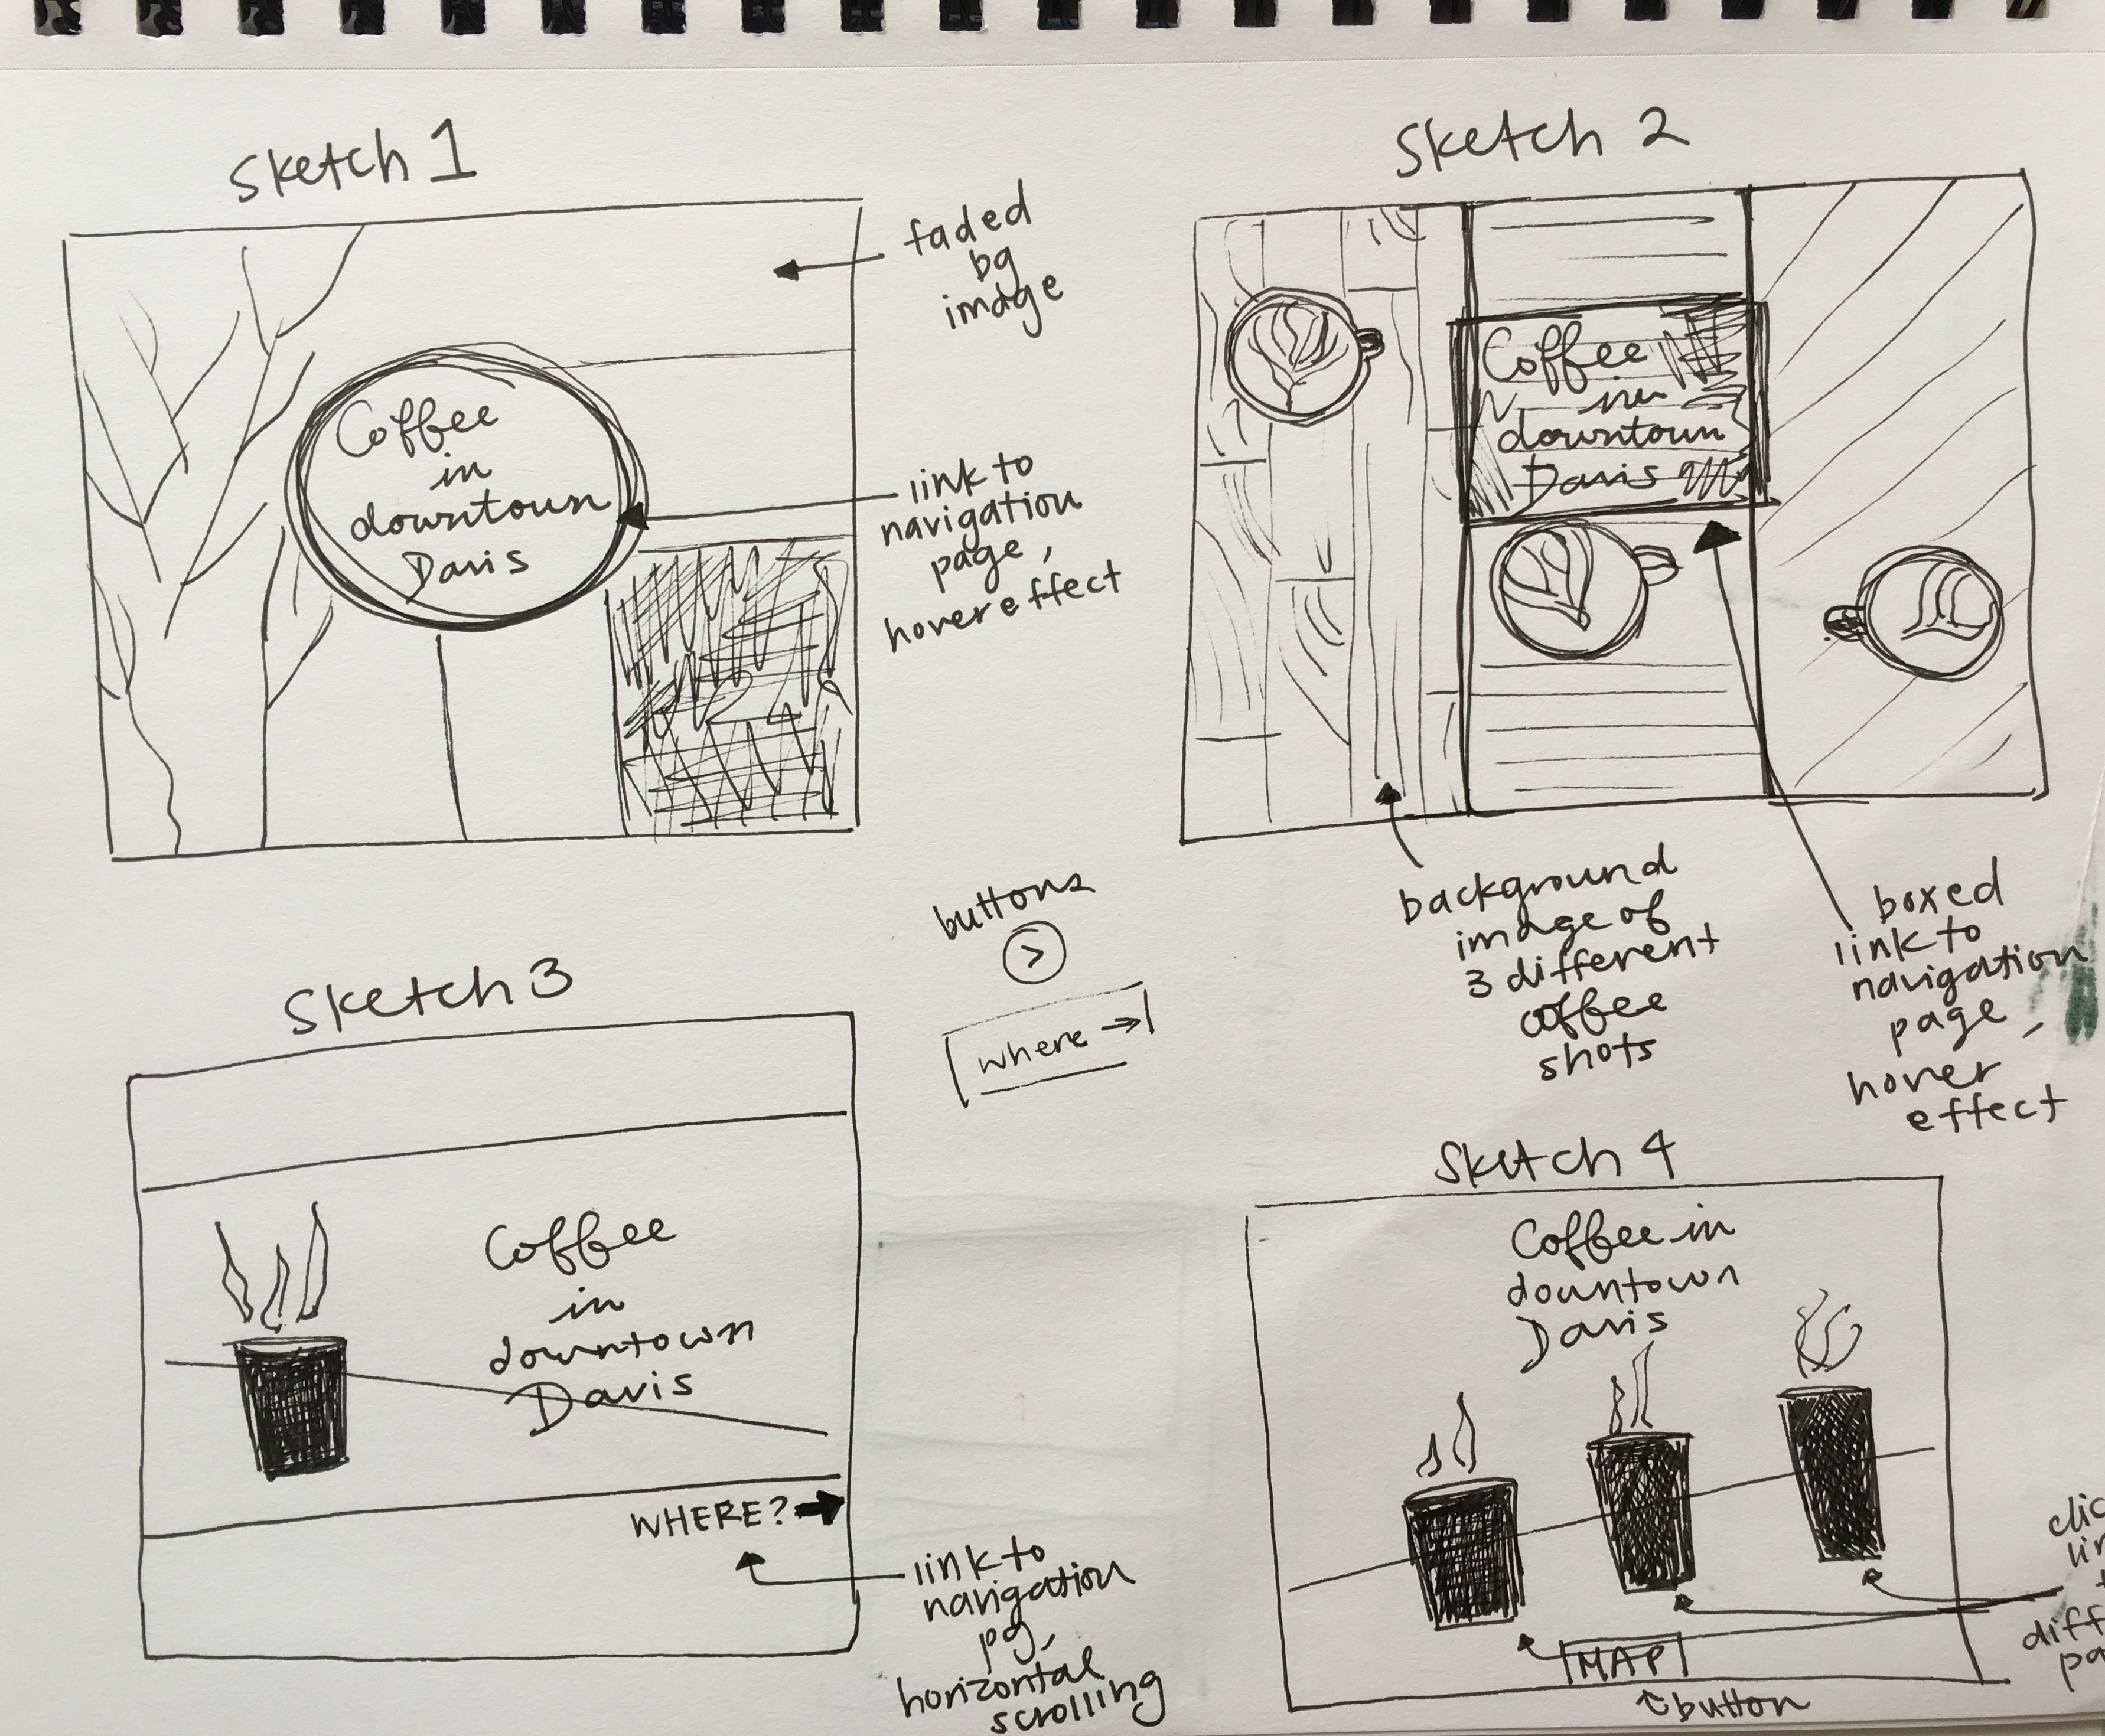 Sketch 1
faded
bg
image
Coffee
in
downtown
Davis
link to
navigation
page,
hover effect
Sketch 2
Coffee
in
downtown
Davis
background
image of
3 different
coffee
shots
boxed
link to
navigation
page,
hover
effect
buttons
>
where →
Sketch 3
Coffee
in
downtown
Davis
WHERE? →
link to
navigation
pg,
horizontal
scrolling
Sketch 4
Coffee in
downtown
Davis
MAP
button